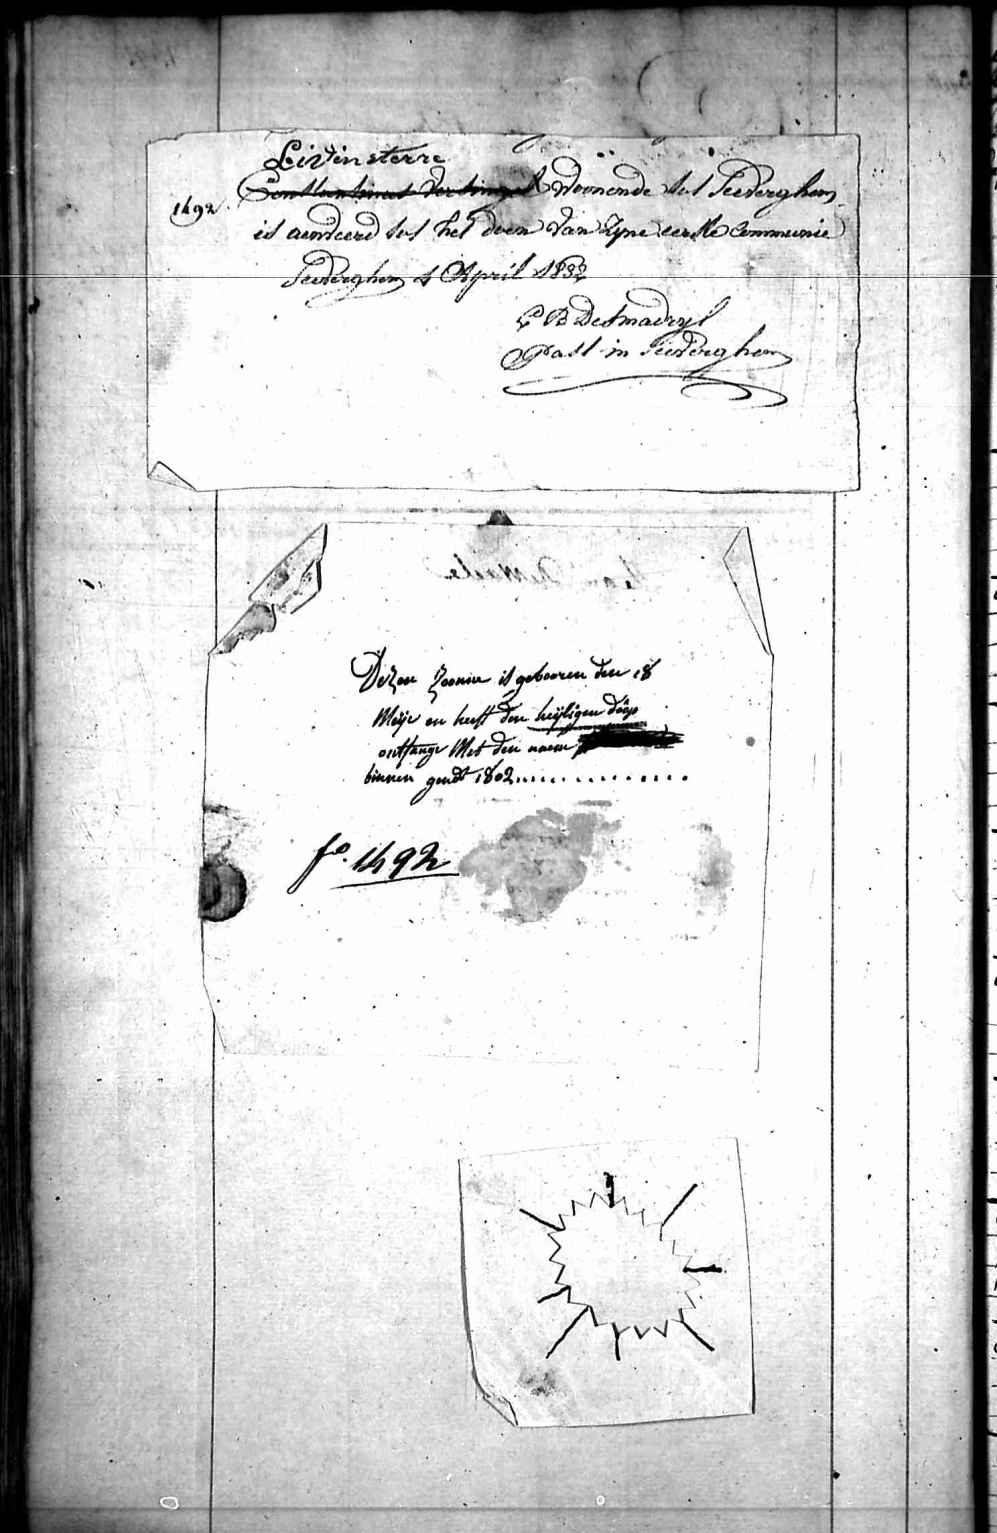 Livinsterre
woonende tot Seeverghem
1492
is aenveerd tot het doen van Zyne eerste Communie
Seeverghem 1 April 1832
C B Desmadryl
Past in Seeverghem
Dezen Zoonin is gebooren den 18
Meije en heeft den heijligen doop
ontfange Met den naem
binnen gendt 1802
fo. 1492